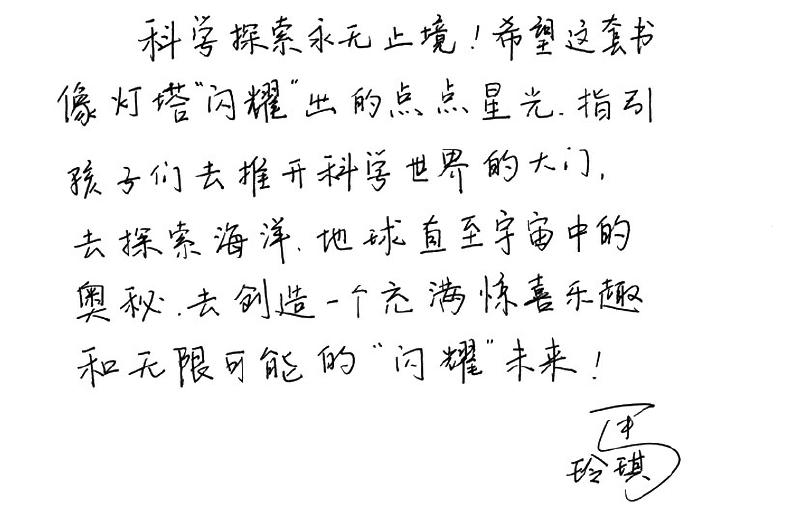 科学探索永无止境！希望这套书
像灯塔“闪耀”出的点点星光，指引
孩子们去推开科学世界的大门，
去探索海洋、地球直至宇宙中的
奥秘，去创造一个充满惊喜乐趣
和无限可能的“闪耀”未来！
玲琪